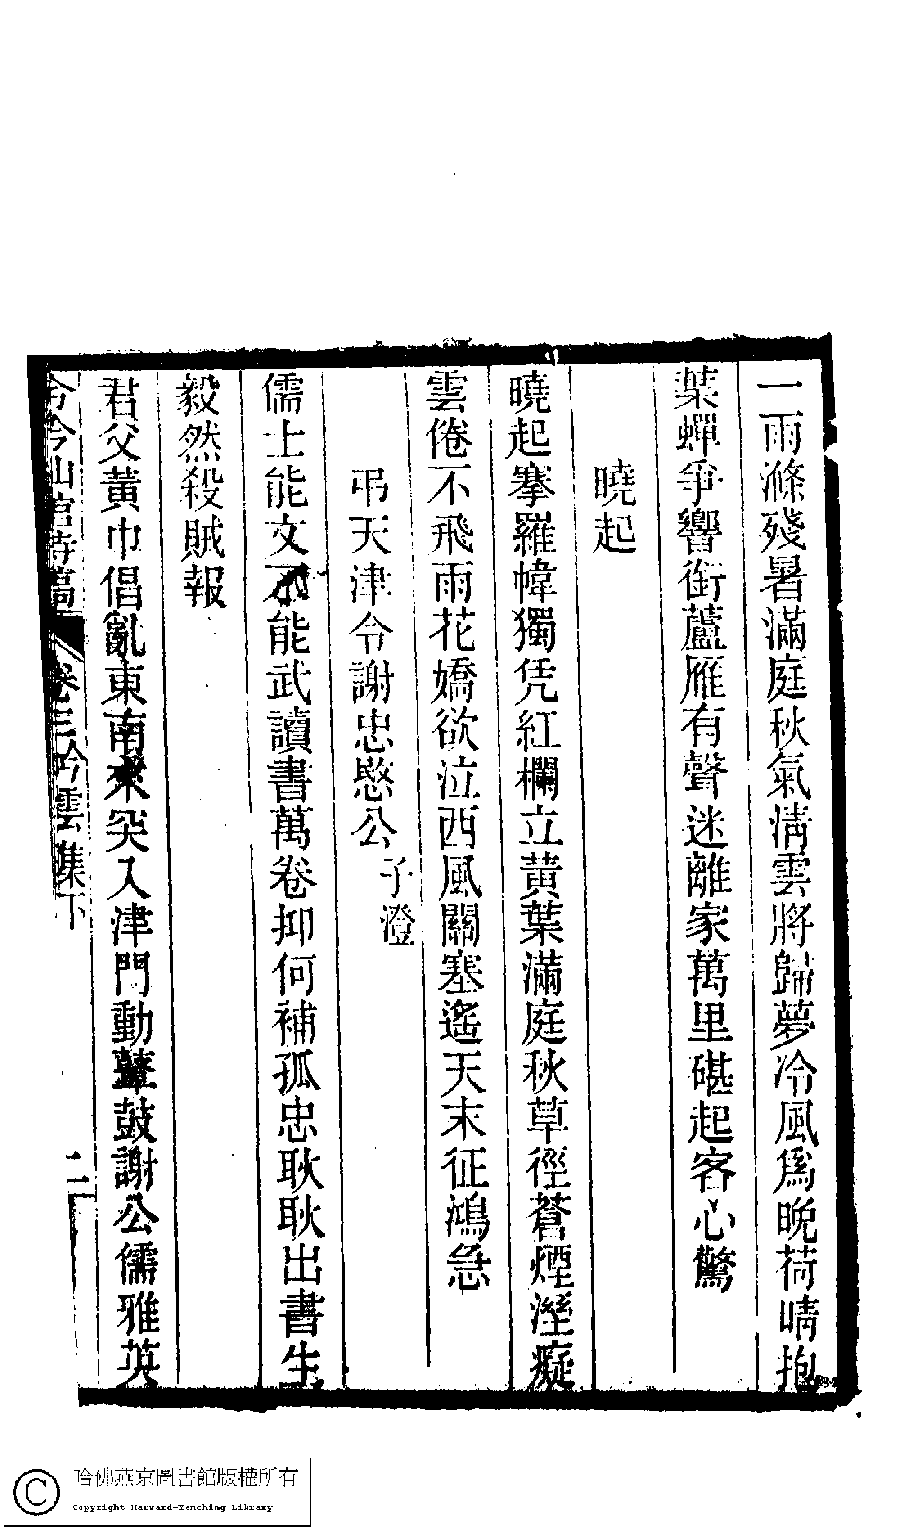 一雨滌殘暑滿庭秋氣清雲將歸夢冷風爲晚荷晴抱
葉蟬爭響銜蘆雁有聲迷離家萬里碪起客心驚
曉起
曉起搴羅幃獨凭紅欄立黄葉滿庭秋草徑蒼煙溼癡
雲倦不飛雨花嬌欲泣西風關塞遙天末征鴻急
弔天津令謝忠愍公子澄
儒士能文不能武讀書萬卷抑何補孤忠耿耿出書生
毅然殺賊報
君父黃巾倡亂東南來突入津門動鼙鼓謝公儒雅英
山舘詩藁
卷三吟雲集下
二
哈佛燕京圖書館版權所有
Copyright Harvard-Yenching Library